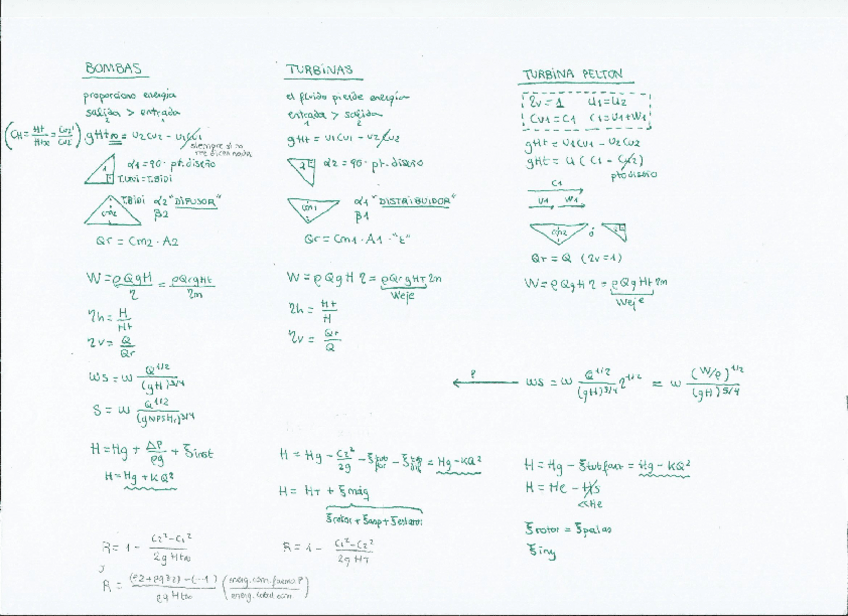 BOMBAS
proporciono energía
salida > entrada
2 1
(CH = Ht/Ht∞ = Cu2'/Cu2) gHt∞ = u2Cu2 - u1Cu1
siempre si no me dicen nada
1 α1 = 90º pt. diseño
T.UNI = T.BIDI
Cm2 T.BIDI α2 "DIFUSOR"
β2
Qr = Cm2 · A2
W = ρQgH/η = ρQrgHt/ηm
ηh = H/Ht
ηv = Q/Qr
ωs = ω Q^1/2/(gH)^3/4
S = ω Q^1/2/(gNPSHr)^3/4
H = Hg + ΔP/ρg + ξinst
H = Hg + KQ²
R = 1 - (C2² - C1²)/(2gHt∞)
R = ((P2 + ρgz2) - (-1))/(ρgHt∞)
TURBINAS
el fluido pierde energía
entrada > salida
1 2
gHt = u1Cu1 - u2Cu2
2 α2 = 90º pt. diseño
Cm1 α1 "DISTRIBUIDOR"
β1
Qr = Cm1 · A1 · "τ"
W = ρQgHη = ρQrgHTηm
Weje
ηh = Ht/H
ηv = Qr/Q
H = Hg - C2²/2g - ξtub for - ξtub = Hg - KQ²
H = HT + ξmáq
ξrotor + ξasp + ξestator
R = 1 - (C1² - C2²)/(2gHT)
TURBINA PELTON
ηv = 1 U1 = U2
Cu1 = C1 C1 = U1 + W1
gHt = U1Cu1 - U2Cu2
gHt = U(C1 - Cu2)
pto diseño
C1
U1 W1
Cm2 ó 2
Qr = Q (ηv = 1)
W = ρQgHη = ρQgHtηm
Weje
P ωs = ω Q^1/2/(gH)^3/4 η^1/2 = ω (W/ρ)^1/2/(gH)^5/4
H = Hg - ξtub for = Hg - KQ²
H = He - Hs
<<He
ξrotor = ξpalas
ξiny